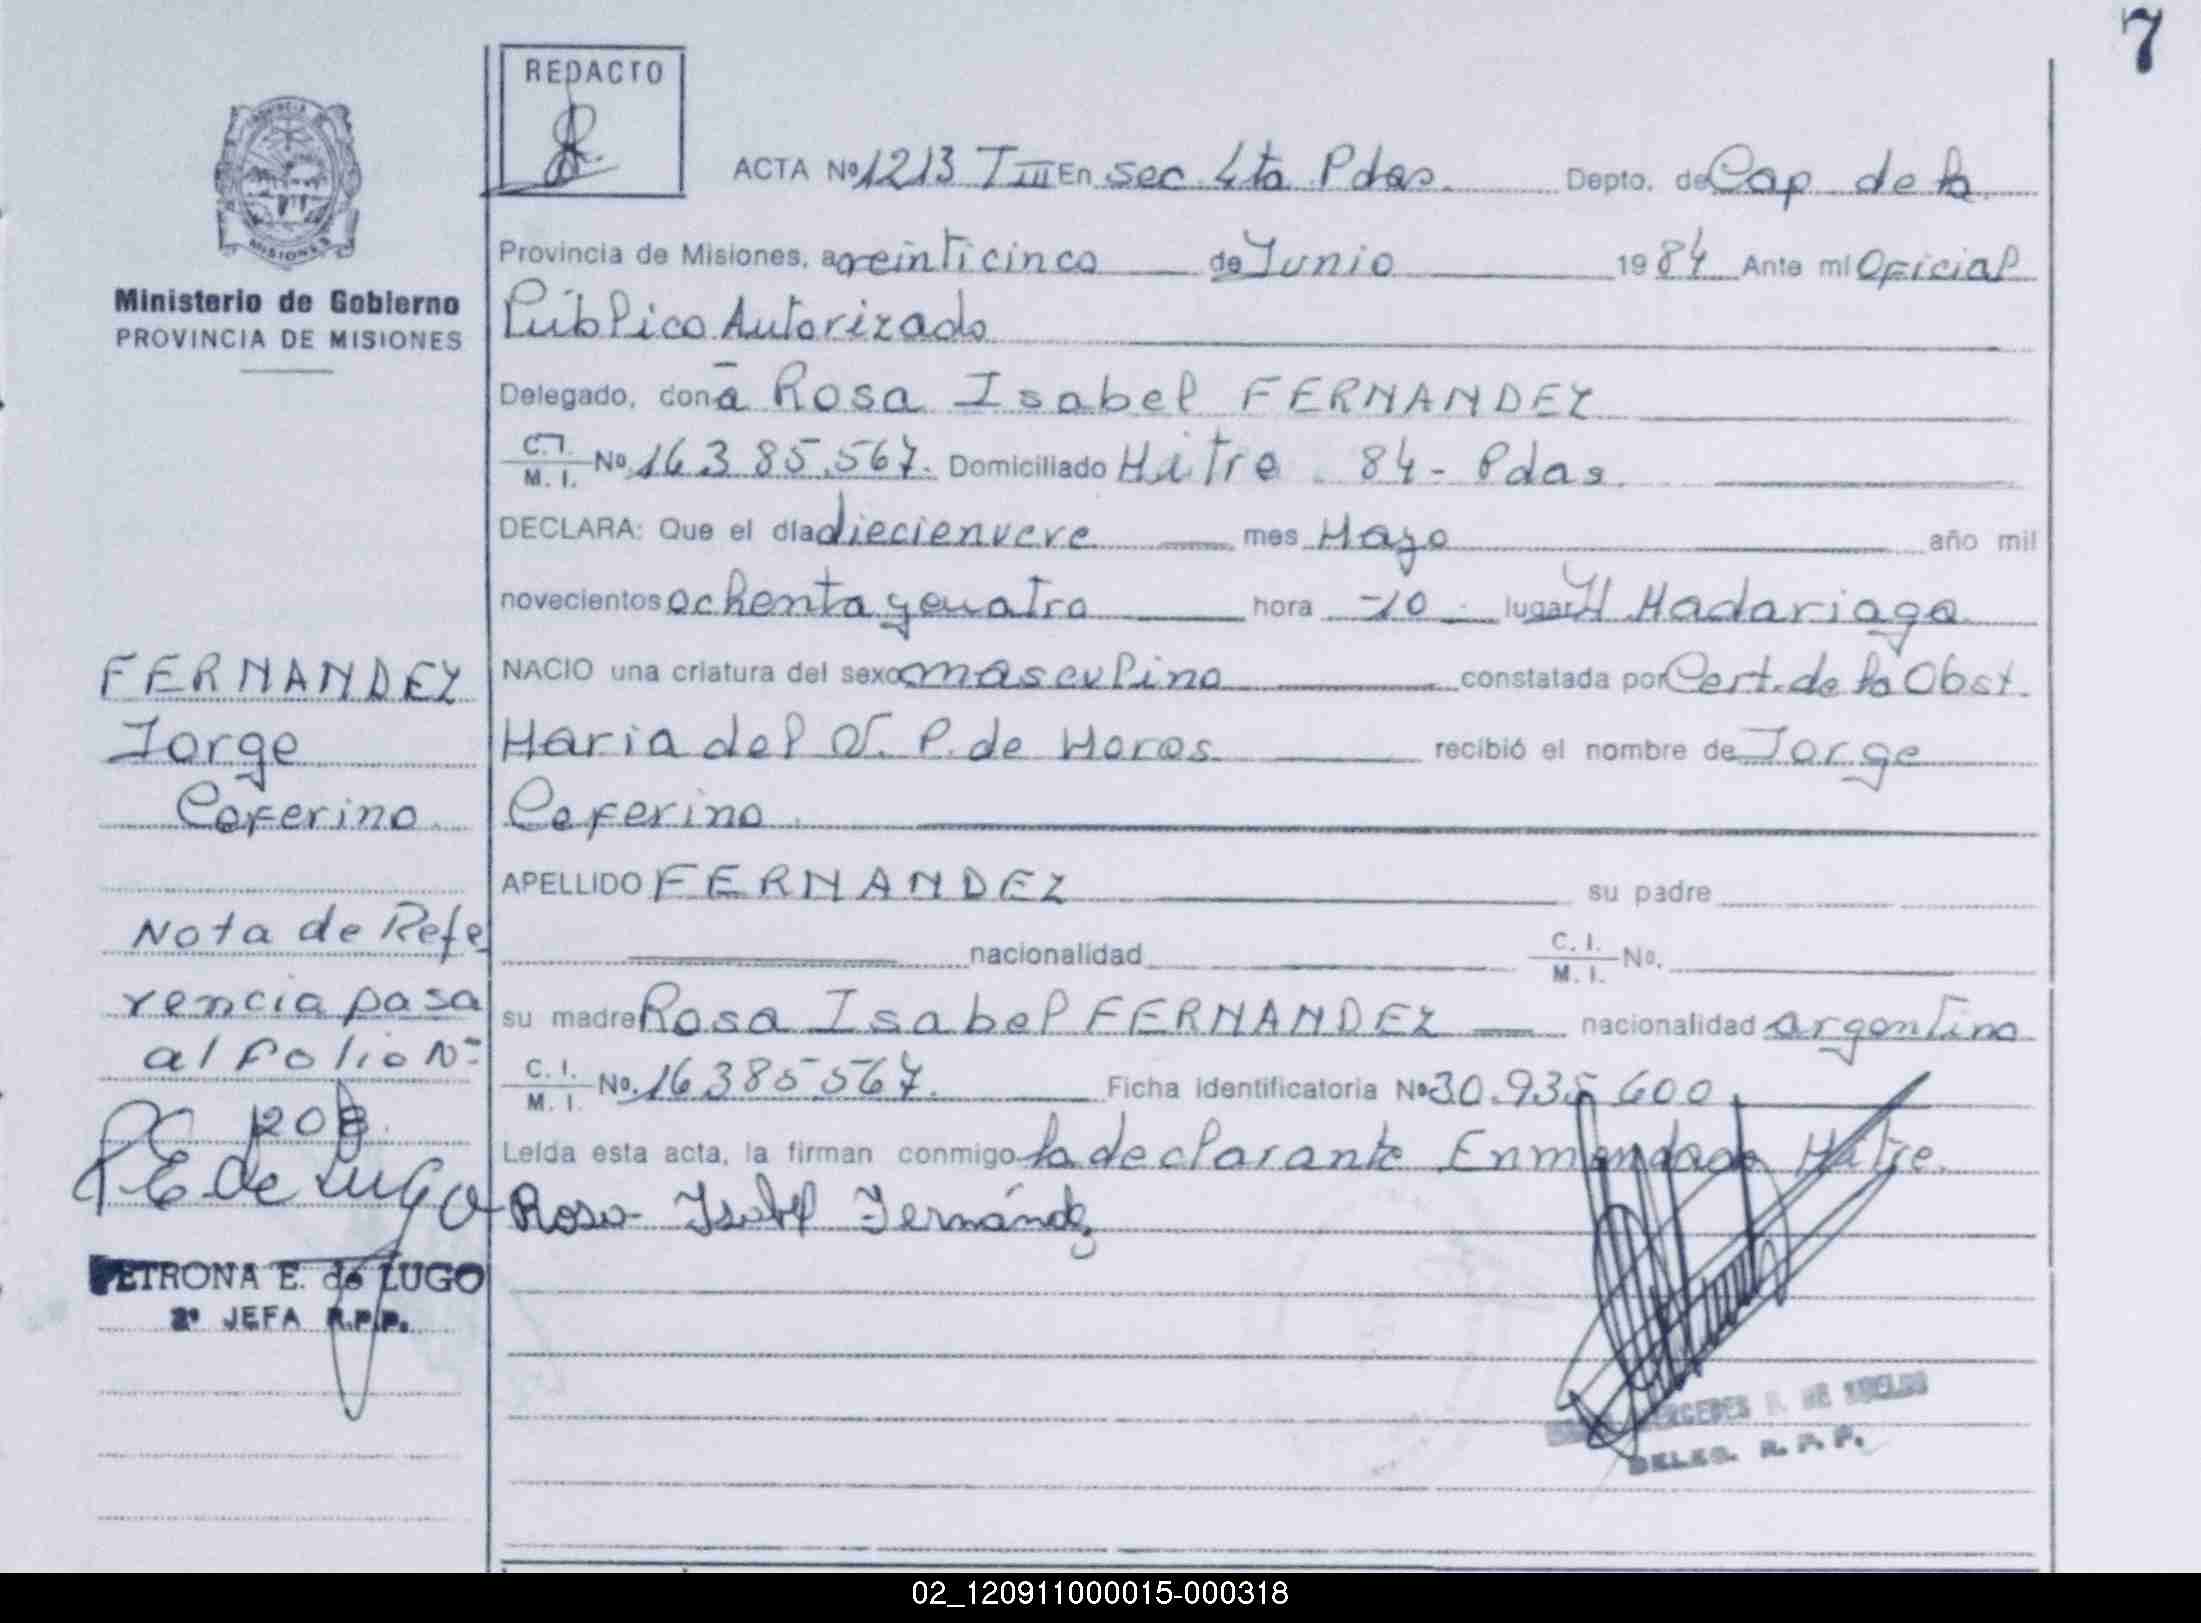 7
REDACTO
PROVINCIA
MISIONES
Ministerio de Gobierno
PROVINCIA DE MISIONES
ACTA Nº 1213 T III En Sec. 4ta Pdas. Depto. de Cap de la
Provincia de Misiones, a veinticinco de Junio 1984 Ante mi Oficial
Público Autorizado
Delegado, don a Rosa Isabel FERNANDEZ
C.I. M.I. Nº 16.385.567. Domiciliado Mitre 84 - Pdas.
DECLARA: Que el día diecienueve mes Mayo año mil
novecientos ochenta y cuatro hora -10- lugar H Madariaga
NACIO una criatura del sexo masculino constatada por Cert. de la Obst.
Maria del V. P. de Moros recibió el nombre de Jorge
Ceferino
APELLIDO FERNANDEZ su padre
nacionalidad C. I. M. I. No.
su madre Rosa Isabel FERNANDEZ nacionalidad argentina
C. I. M. I. No. 16385567. Ficha identificatoria Nº 30.935.600
Leída esta acta, la firman conmigo la declarante Enmendado Mitre.
Rosa Isabel Fernández
FERNANDEZ
Jorge
Ceferino
Nota de Refe
rencia pasa
al folio Nº
208.
P E de Lugo
PETRONA E. de LUGO
2ª JEFA R.P.P.
MERCEDES
DELEG. R. P. P.
02_120911000015-000318